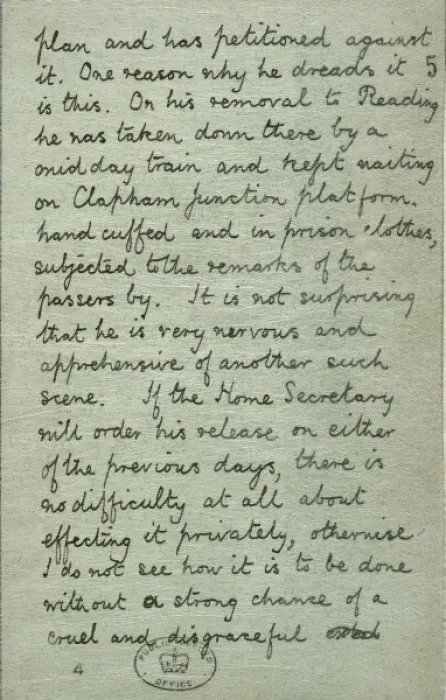 plan and has petitioned against
it. One reason why he dreads it 5
is this. On his removal to Reading
he was taken down there by a
mid day train and kept waiting
on Clapham Junction platform,
handcuffed and in prison clothes,
subjected to the remarks of the
passers by. It is not surprising
that he is very nervous and
apprehensive of another such
scene. If the Home Secretary
will order his release on either
of the previous days, there is
no difficulty at all about
effecting it privately, otherwise
I do not see how it is to be done
without a strong chance of a
cruel and disgraceful
PUBLIC RECORD
OFFICE
4